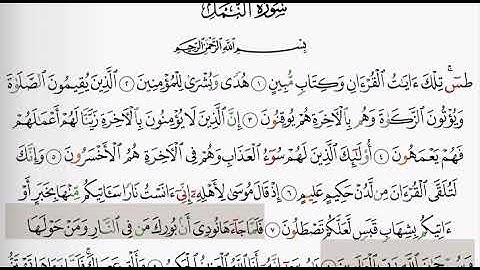 سورة النمل
بسم الله الرحمن الرحيم
طسٓ ۚ تِلْكَ ءَايَٰتُ ٱلْقُرْءَانِ وَكِتَابٍ مُّبِينٍ ١ هُدًى وَبُشْرَىٰ لِلْمُؤْمِنِينَ ٢ ٱلَّذِينَ يُقِيمُونَ ٱلصَّلَوٰةَ
وَيُؤْتُونَ ٱلزَّكَوٰةَ وَهُم بِٱلْءَاخِرَةِ هُمْ يُوقِنُونَ ٣ إِنَّ ٱلَّذِينَ لَا يُؤْمِنُونَ بِٱلْءَاخِرَةِ زَيَّنَّا لَهُمْ أَعْمَٰلَهُمْ
فَهُمْ يَعْمَهُونَ ٤ أُو۟لَٰٓئِكَ ٱلَّذِينَ لَهُمْ سُوٓءُ ٱلْعَذَابِ وَهُمْ فِى ٱلْءَاخِرَةِ هُمُ ٱلْأَخْسَرُونَ ٥ وَإِنَّكَ
لَتُلَقَّى ٱلْقُرْءَانَ مِن لَّدُنْ حَكِيمٍ عَلِيمٍ ٦ إِذْ قَالَ مُوسَىٰ لِأَهْلِهِۦٓ إِنِّىٓ ءَانَسْتُ نَارًا سَـَٔاتِيكُم مِّنْهَا بِخَبَرٍ أَوْ
ءَاتِيكُم بِشِهَابٍ قَبَسٍ لَّعَلَّكُمْ تَصْطَلُونَ ٧ فَلَمَّا جَآءَهَا نُودِىَ أَنۢ بُورِكَ مَن فِى ٱلنَّارِ وَمَنْ حَوْلَهَا